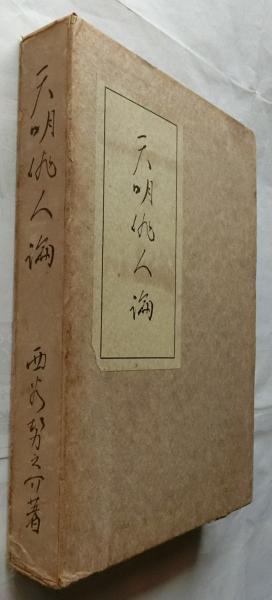 天明俳人論
西谷勢之介著
天明俳人論